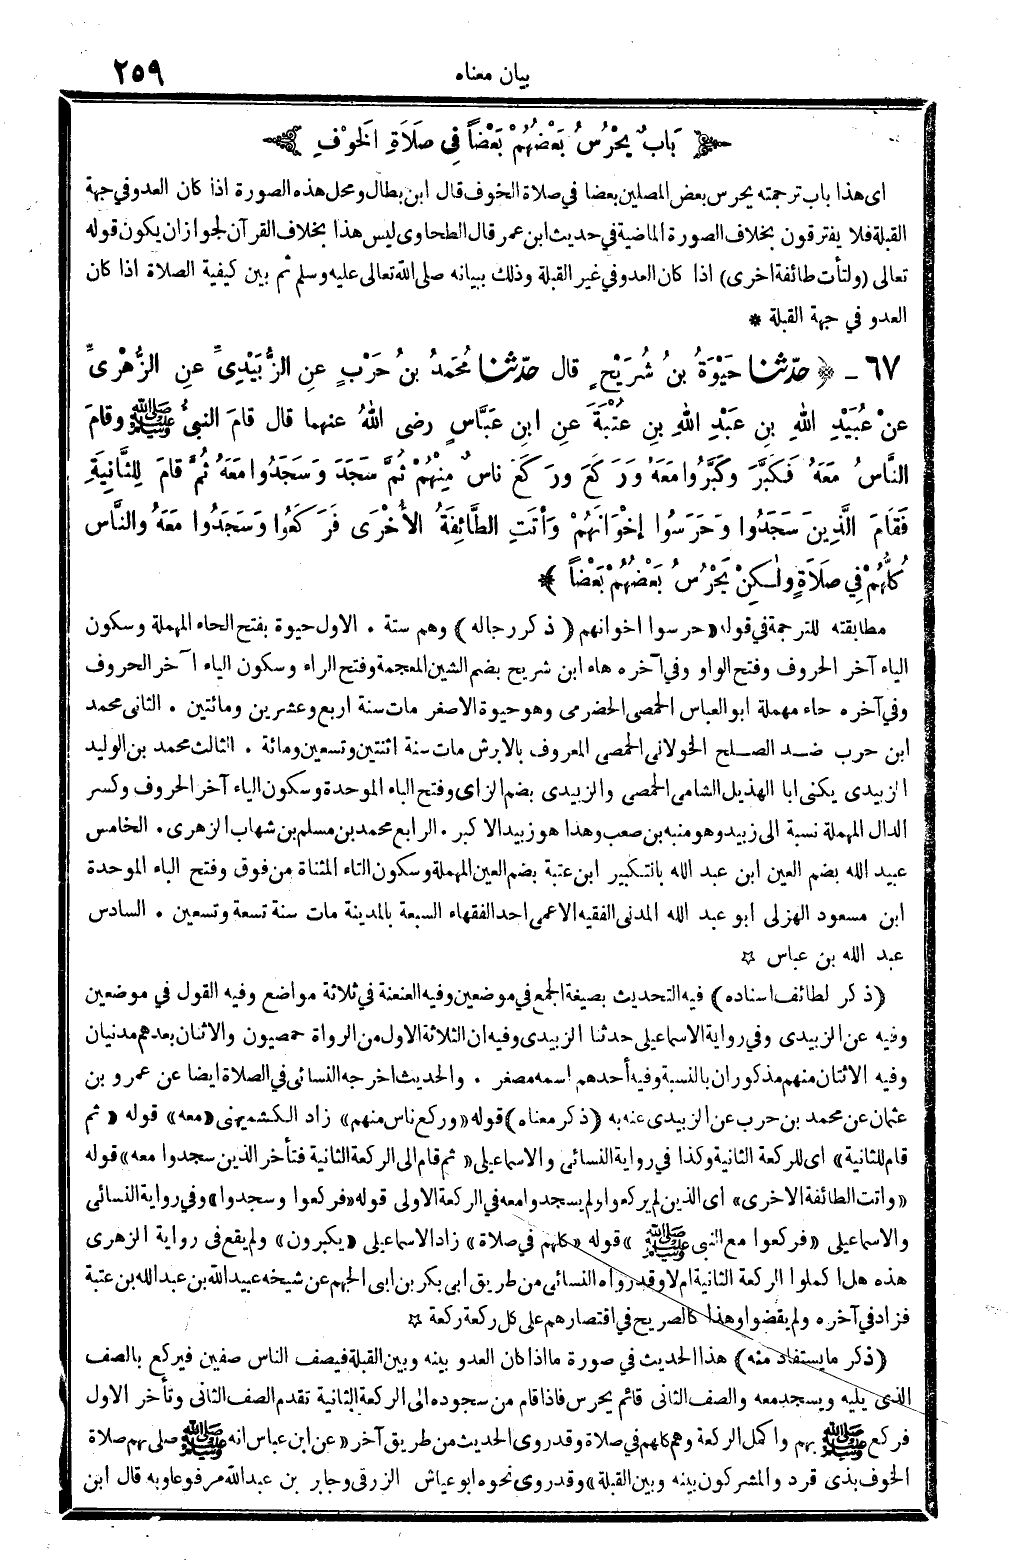 بيان معناه
٢٥٩
بَابٌ يَحْرُسُ بَعْضُهُمْ بَعْضاً فِي صَلَاةِ الْخَوْفِ
اى هذا باب ترجمته يحرس بعض المصلين بعضا في صلاة الخوف قال ابن بطال ومحل هذه الصورة اذا كان العدو في جهة
القبلة فلا يفترقون بخلاف الصورة الماضية في حديث ابن عمر قال الطحاوى ليس هذا بخلاف القرآن لجواز ان يكون قوله
تعالى (ولتأت طائفة اخرى) اذا كان العدو في غير القبلة وذلك ببيانه صلى الله تعالى عليه وسلم ثم بين كيفية الصلاة اذا كان
العدو في جهة القبلة *
٦٧ - ﴿ حَدَّثَنَا حَيْوَةُ بنُ شُرَيْحٍ قال حَدَّثَنَا مُحَمَّدُ بنُ حَرْبٍ عنِ الزُّبَيْدِىِّ عنِ الزُّهْرِىِّ
عنْ عُبَيْدِ اللهِ بنِ عَبْدِ اللهِ بنِ عُتْبَةَ عَنِ ابنِ عَبَّاسٍ رضى اللهُ عنهما قال قامَ النبىُّ ﷺ وقامَ
النَّاسُ مَعَهُ فَكَبَّرَ وكَبَّرُوا مَعَهُ وَرَكَعَ ورَكَعَ ناسٌ مِنْهُمْ ثُمَّ سَجَدَ وَسَجَدُوا مَعَهُ ثُمَّ قامَ لِلثَّانِيَةِ
فَقَامَ الَّذِينَ سَجَدُوا وَحَرَسُوا إخْوَانَهُمْ وَأتَتِ الطَّائِفَةُ الأُخْرَى فَرَكَعُوا وَسَجَدُوا مَعَهُ والنَّاسُ
كُلُّهُمْ فِي صَلَاةٍ ولٰكِنْ يَحْرُسُ بَعْضُهُمْ بَعْضاً ﴾*
مطابقته للترجمة في قوله «حرسوا اخوانهم (ذكر رجاله) وهم ستة . الاول حيوة بفتح الحاء المهملة وسكون
الياء آخر الحروف وفتح الواو وفي آخره هاء ابن شريح بضم الشين المعجمة وفتح الراء وسكون الياء آخر الحروف
وفي آخره حاء مهملة ابو العباس الحمصى الحضرمى وهو حيوة الاصغر مات سنة اربع وعشرين ومائتين . الثانى محمد
ابن حرب ضد الصلح الخولانى الحمصى المعروف بالابرش مات سنة اثنتين وتسعين ومائة . الثالث محمد بن الوليد
الزبيدى يكنى ابا الهذيل الشامى الحمصى والزبيدى بضم الزاى وفتح الباء الموحدة وسكون الياء آخر الحروف وكسر
الدال المهملة نسبة الى زبيد وهو منبه بن صعب وهذا هو زبيد الاكبر . الرابع محمد بن مسلم بن شهاب الزهرى . الخامس
عبيد الله بضم العين ابن عبد الله بالتكبير ابن عتبة بضم العين المهملة وسكون التاء المثناة من فوق وفتح الباء الموحدة
ابن مسعود الهزلى ابو عبد الله المدنى الفقيه الاعمى احد الفقهاء السبعة بالمدينة مات سنة تسعة وتسعين . السادس
عبد الله بن عباس ☆
(ذكر لطائف اسناده) فيه التحديث بصيغة الجمع في موضعين وفيه العنعنة في ثلاثة مواضع وفيه القول في موضعين
وفيه عن الزبيدى وفي رواية الاسماعيلى حدثنا الزبيدى وفيه ان الثلاثة الاول من الرواة حمصيون والاثنان بعدهم مدنيان
وفيه الاثنان منهم مذكوران بالنسبة وفيه أحدهم اسمه مصغر . والحديث اخرجه النسائى في الصلاة ايضا عن عمرو بن
عثمان عن محمد بن حرب عن الزبيدى عنه به (ذكر معناه) قوله «وركع ناس منهم» زاد الكشميهنى «معه» قوله «ثم
قام للثانية» اى للركعة الثانية وكذا في رواية النسائى والاسماعيلى «ثم قام الى الركعة الثانية فتأخر الذين سجدوا معه» قوله
«واتت الطائفة الاخرى» اى الذين لم يركعوا ولم يسجدوا معه في الركعة الاولى قوله «فركعوا وسجدوا» وفي رواية النسائى
والاسماعيلى «فركعوا مع النبى ﷺ» قوله «كلهم في صلاة» زاد الاسماعيلى «يكبرون» ولم يقع في رواية الزهرى
هذه هل اكملوا الركعة الثانية ام لا وقد رواه النسائى من طريق ابى بكر بن ابى الجهم عن شيخه عبيد الله بن عبد الله بن عتبة
فزاد في آخره ولم يقضوا وهذا كالصريح في اقتصارهم على كل ركعة ركعة ☆
(ذكر ما يستفاد منه) هذا الحديث في صورة ما اذا كان العدو بينه وبين القبلة فيصف الناس صفين فيركع بالصف
الذى يليه ويسجد معه والصف الثانى قائم يحرس فاذا قام من سجوده الى الركعة الثانية تقدم الصف الثانى وتأخر الاول
فركع ﷺ بهم واكمل الركعة وهم كلهم في صلاة وقد روى الحديث من طريق آخر «عن ابن عباس انه ﷺ صلى بهم صلاة
الخوف بذى قرد والمشركون بينه وبين القبلة» وقد روى نحوه ابو عياش الزرقى وجابر بن عبدالله مرفوعا وبه قال ابن